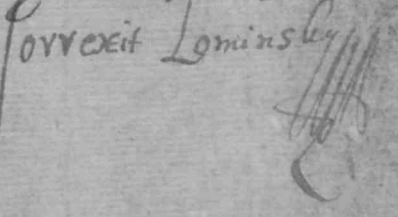 Correxit Lominsky